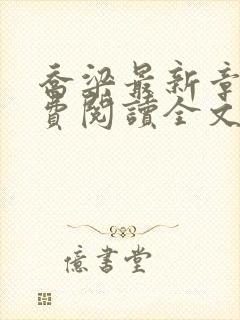 喬梁最新章
費閱讀全文
億書堂